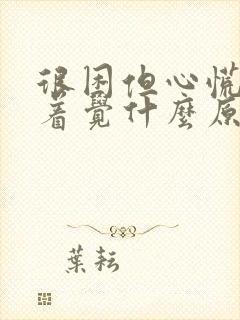 很困但心慌
着覺什麼原
葉耘